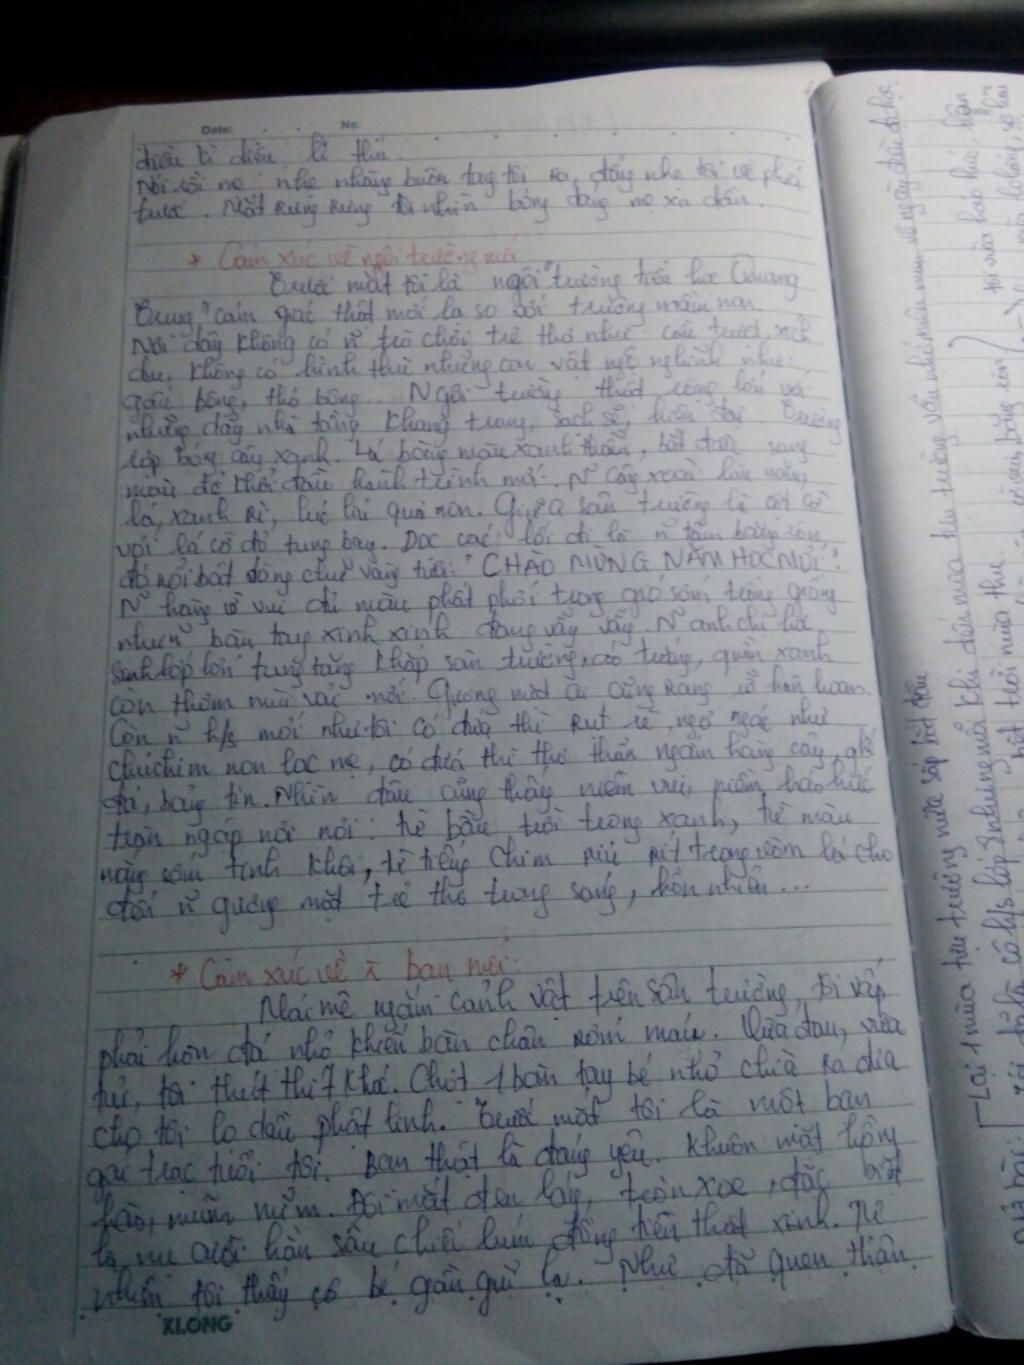 Date: No:
điều kì diệu, lí thú.
Nói rồi mẹ nhẹ nhàng buông tay tôi ra, đẩy nhẹ tôi về phía
trước. Mắt rưng rưng tôi nhìn bóng dáng mẹ xa dần.
* Cảm xúc về ngôi trường mới
Trước mắt tôi là ngôi "trường tiểu học Quang
Trung" cảm giác thật mới lạ so với trường mầm non.
Nơi đây không có n~ trò chơi trẻ thơ như cầu trượt, xích
đu, không có hình thù những con vật ngộ nghĩnh như:
gấu bông, thỏ bông... Ngôi trường thật rộng lớn với
những dãy nhà tầng khang trang, sạch sẽ, hiện đại. Trường
rợp bóng cây xanh. Lá bàng màu xanh thẫm, bắt đầu sang
màu đỏ khởi đầu hành trình mới. N~ cây xoài lâu năm,
lá xanh rì, lúc lỉu quả non. Giữa sân trường là cột cờ
với lá cờ đỏ tung bay. Dọc các lối đi là n~ tấm băng rôn,
đỏ nổi bật dòng chữ vàng tươi: "CHÀO MỪNG NĂM HỌC MỚI".
N~ hàng cờ vui đủ màu phất phới trong gió sớm trông giống
như n~ bàn tay xinh xinh đang vẫy vẫy. N~ anh chị học
sinh lớp lớn tung tăng khắp sân trường, áo trắng, quần xanh
còn thơm mùi vải mới. Gương mặt ai cũng rạng rỡ hân hoan.
Còn n~ h/s mới như tôi có đứa thì rụt rè, ngơ ngác như
chú chim non lạc mẹ, có đứa thì thơ thẩn ngắm hàng cây, ghế
đá, bảng tin. Nhìn đâu cũng thấy niềm vui, niềm háo hức
tràn ngập nơi nơi: từ bầu trời trong xanh, từ màu
nắng sớm tinh khôi, từ tiếng chim ríu rít trong vòm lá cho
đến n~ gương mặt trẻ thơ trong sáng, hồn nhiên...
* Cảm xúc về bạn mới:
Mải mê ngắm cảnh vật trên sân trường, tôi vấp
phải hòn đá nhỏ khiến bàn chân rớm máu. Vừa đau, vừa
tủi, tôi thút thít khóc. Chợt 1 bàn tay bé nhỏ chìa ra đưa
cho tôi lọ dầu phật linh. Trước mắt tôi là một bạn
gái trạc tuổi tôi. Bạn thật là đáng yêu. Khuôn mặt hồng
hào, mũm mĩm. Đôi mắt đen láy, tròn xoe, đặc biệt
là nụ cười hằn sâu chiếc lúm đồng tiền thật xinh. Tự
nhiên tôi thấy cô bé gần gũi lạ. Như đã quen thân
KLONG